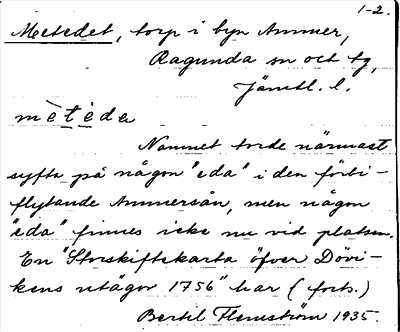 1-2.
Metedet, torp i byn Ammer,
Ragunda sn och tg,
Jämtl. l.
mètéda
Namnet torde närmast
syfta på någon "eda" i den förbi-
flytande Ammersån, men någon
"eda" finnes icke nu vid platsen.
En "Storskifteskarta öfver Dövi-
kens utägor 1756" har (forts.)
Bertil Flemström 1935.